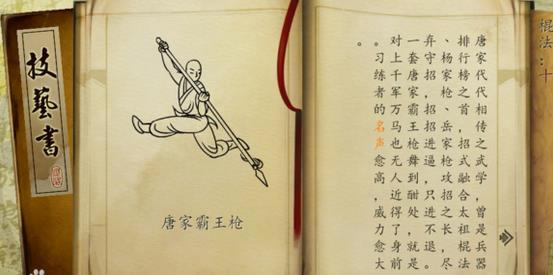 技藝書
唐家霸王枪
唐家代代相传之武学，曾是兵器
排行榜之首，招式融合太祖棍法
、杨家枪、岳家枪攻招之长，尽
弃守招，招招进逼，只进不退。
一套唐家霸王枪舞到酣处，就是
对上千军万马也无人近得了身前
。习练者的名声愈高，威力愈大
。
棍法：十